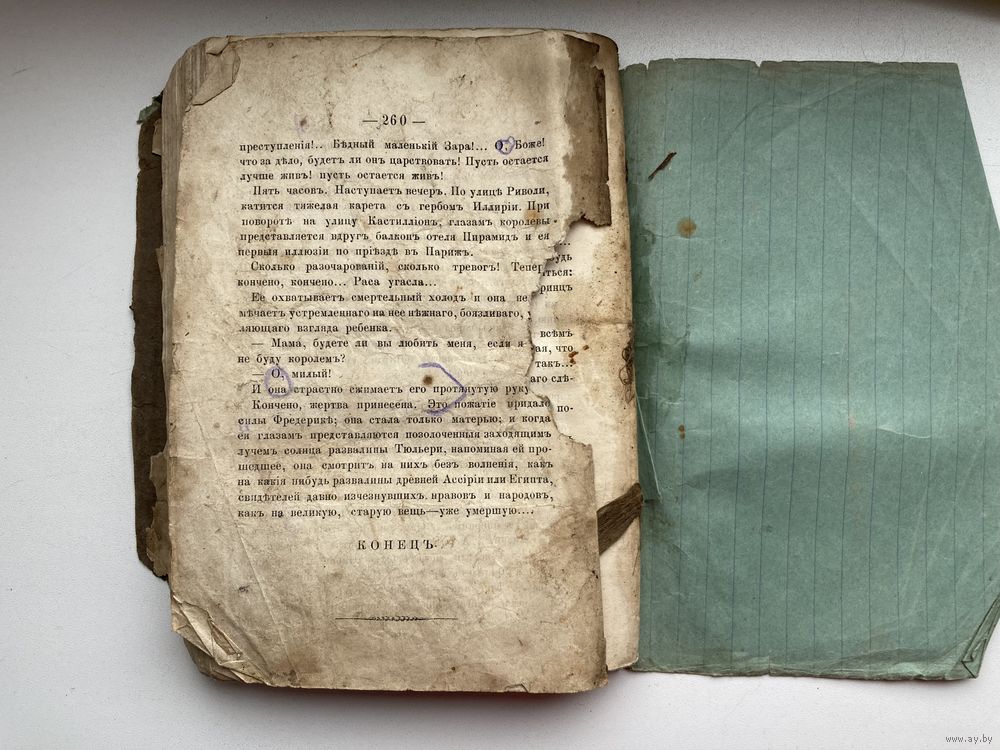 — 260 —
преступленія!.. Бѣдный маленькій Зара!... О, Боже!
что за дѣло, будетъ ли онъ царствовать! Пусть остается
лучше живъ! пусть остается живъ!
Пять часовъ. Наступаетъ вечеръ. По улицѣ Риволи,
катится тяжелая карета съ гербомъ Иллиріи. При
поворотѣ на улицу Кастилліонъ, глазамъ королевы
представляется вдругъ балконъ отеля Пирамидъ и ея
первыя иллюзіи по пріѣздѣ въ Парижъ.
Сколько разочарованій, сколько тревогъ!
кончено, кончено... Раса угасла...
Ее охватываетъ смертельный холодъ и она не
мѣчаетъ устремленнаго на нее нѣжнаго, боязливаго,
ляющаго взгляда ребенка.
— Мама, будете ли вы любить меня, если я
не буду королемъ?
— О, милый!
И она страстно сжимаетъ его протянутую руку
Кончено, жертва принесена. Это пожатіе придало
силы Фредерикѣ; она стала только матерью; и когда
ея глазамъ представляются позолоченныя заходящимъ
лучемъ солнца развалины Тюльери, напоминая ей про-
шедшее, она смотритъ на нихъ безъ волненія, какъ
на какія нибудь развалины древней Ассиріи или Египта,
свидѣтелей давно изчезнувшихъ нравовъ и народовъ,
какъ на великую, старую вещь—уже умершую....
КОНЕЦЪ.
ринцъ
всѣмъ
ая, что
такъ...
аго слѣ-
по-
www.ay.by